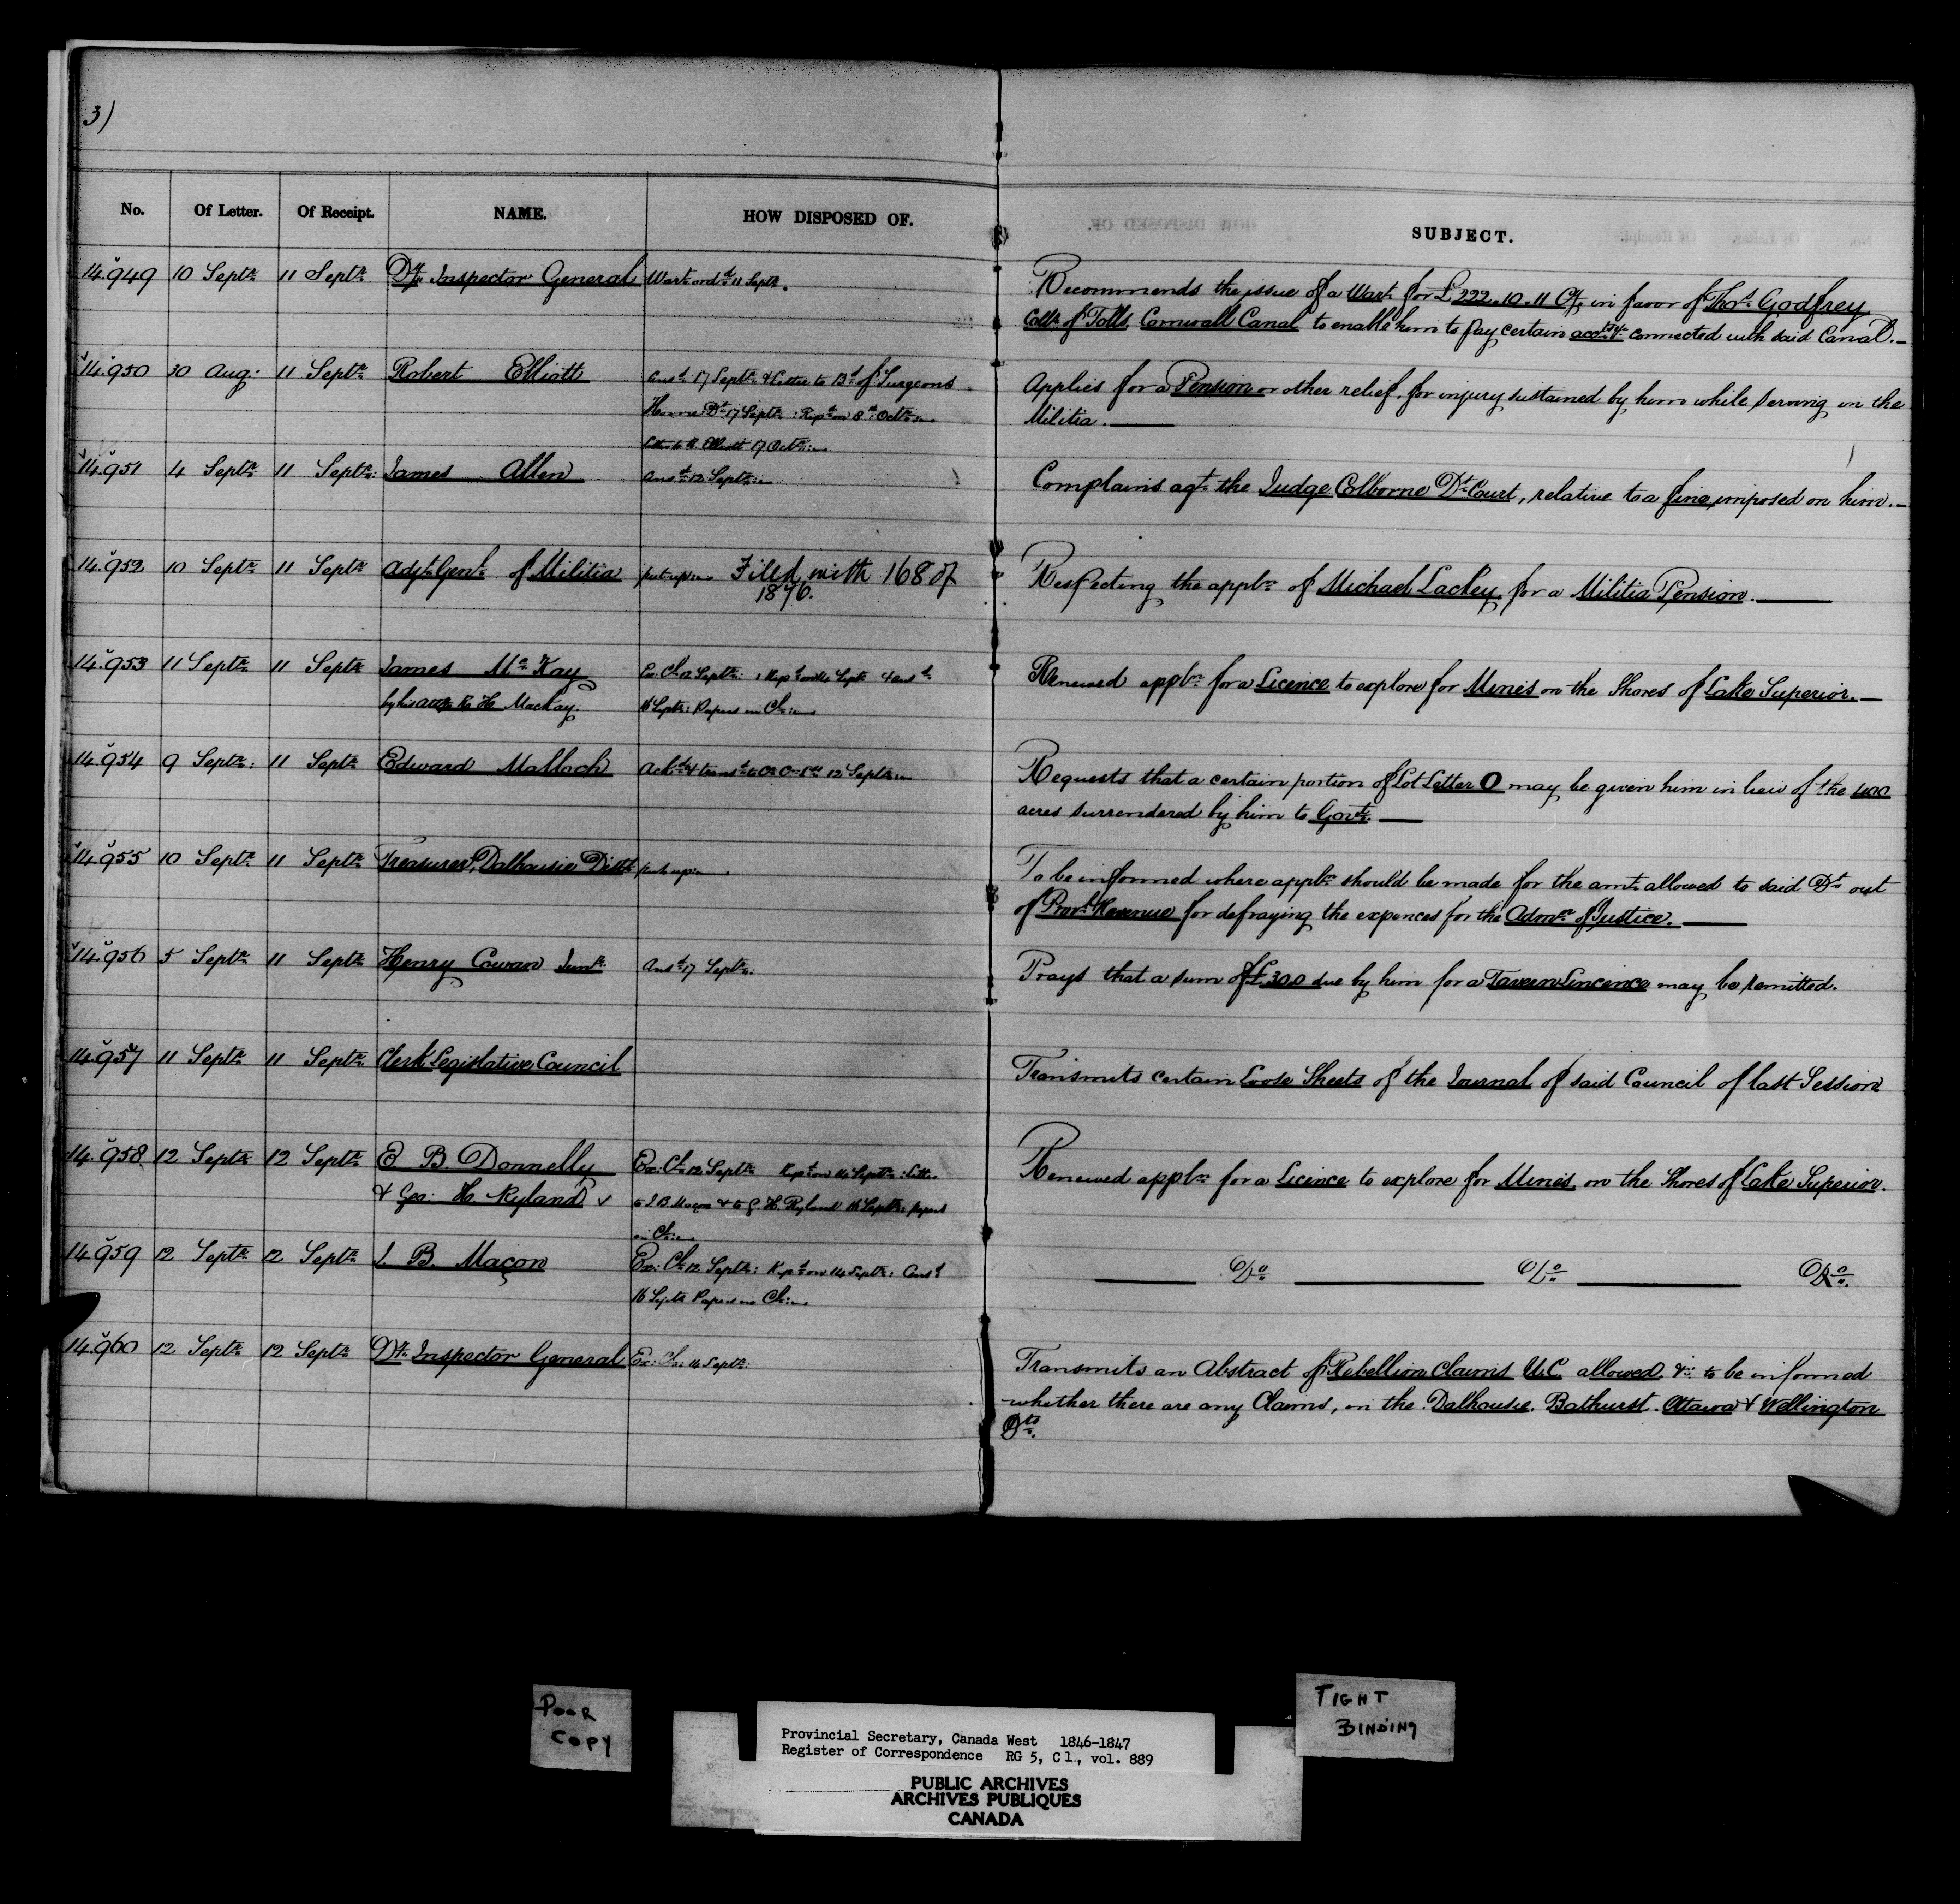 3)
No. Of Letter. Of Receipt. NAME. HOW DISPOSED OF. SUBJECT.
14.949 10 Septr 11 Septr Dy Inspector General Wart ordd 11 Septr. Recommends the issue of a Wart for £222.10.11 Cy in favor of Thos Godfrey
Collr of Tolls, Cornwall Canal to enable him to pay certain accts &c connected with said Canal.—
14.950 30 Aug: 11 Septr Robert Elliott Ansd 17 Septr & Letter to Bd of Surgeons Applies for a Pension or other relief for injury sustained by him while serving in the
Home Dt 17 Septr: Repd on 8th Octr Militia.——
17 Octr
14.951 4 Septr 11 Septr: James Allen Ansd 12 Septr Complains agt the Judge Colborne Dt Court, relative to a fine imposed on him.—
14.952 10 Septr 11 Septr Adjt Genl of Militia put up Filed with 168 of Respecting the appln of Michael Lackey for a Militia Pension.——
1876.
14.953 11 Septr 11 Septr James McKay Ex: Cl 12 Septr: Repd on 14 Septr & ansd Renewed appln for a Licence to explore for Mines on the Shores of Lake Superior.—
by his atty H Mackay. 16 Septr: Papers in Cl:
14.954 9 Septr: 11 Septr Edward Malloch Ackd & transd to 12 Septr Requests that a certain portion of Lot Letter O may be given him in lieu of the 400
acres surrendered by him to Govt.——
14.955 10 Septr 11 Septr Treasurer, Dalhousie Distt put up To be informed where appln should be made for the amt allowed to said Dt out
of Provl Revenue for defraying the expences for the Admn of Justice.——
14.956 5 Septr 11 Septr Henry Cowan Junr Ansd 17 Septr. Prays that a sum of £300 due by him for a Tavern Lincence may be remitted.
14.957 11 Septr 11 Septr Clerk Legislative Council Transmits certain Loose Sheets of the Journal of said Council of last Session
14.958 12 Septr 12 Septr E B. Donnelly Ex: Cl 12 Septr Repd on 14 Septr: Letter Renewed appln for a Licence to explore for Mines on the Shores of Lake Superior.
& Geo: H Ryland to I. B. Maçon & to G. H. Ryland 16 Septr: papers
in Cl:
14.959 12 Septr 12 Septr I. B. Maçon Ex: Cl 12 Septr: Repd on 14 Septr: Ansd —— Do —— Do —— Do.
16 Septr Papers in Cl:
14.960 12 Septr 12 Septr Dy Inspector General Ex: Cl: 14 Septr: Transmits an Abstract of Rebellion Claims U.C. allowed, &: to be informed
whether there are any Claims, in the Dalhousie. Bathurst. Ottawa & Wellington
Dts.
POOR
COPY
TIGHT
BINDING
Provincial Secretary, Canada West 1846-1847
Register of Correspondence RG 5, C 1., vol. 889
PUBLIC ARCHIVES
ARCHIVES PUBLIQUES
CANADA